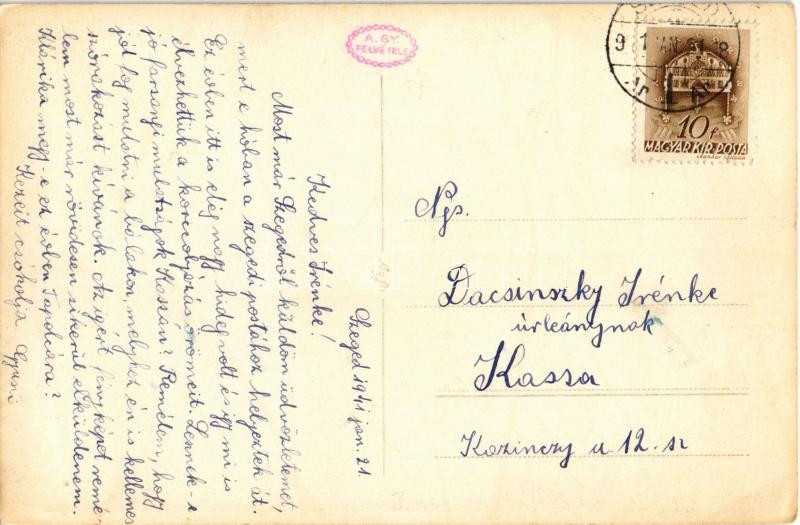 A. GY.
FELVÉTELE
Szeged 1941 jan. 21
Kedves Irénke!
Most már Szegedről küldöm üdvözletemet,
mert e hóban a szegedi postához helyeztek át.
Ez évben itt is elég nagy hideg volt és így mi is
élvezhettük a korcsolyázás örömeit. Lesznek-e
jó farsangi mulatságok Kassán? Remélem, hogy
jól fog mulatni a bálakon, melyhez én is kellemes
szórakozást kívánok. Az igért fényképet remé-
lem most már rövidesen sikerül elküldenem.
Klárika megy-e ez évben Tapolcára?
Kezeit csókolja Gyuszi
10 f
MAGYAR KIR. POSTA
LÉGRÁDY SÁNDOR
Ngs.
Dacsinszky Irénke
úrleánynak
Kassa
Kazinczy u 12. sz